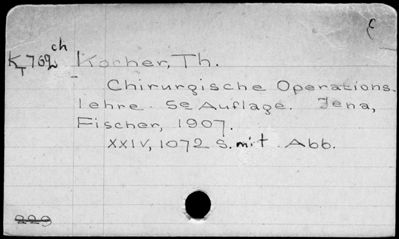 c
K_T 762 ch Kocher, Th.
Chirurgische Operations-
lehre. 5e Auflage. Jena,
Fischer, 1907.
XXIV, 1072 S. mit Abb.
229